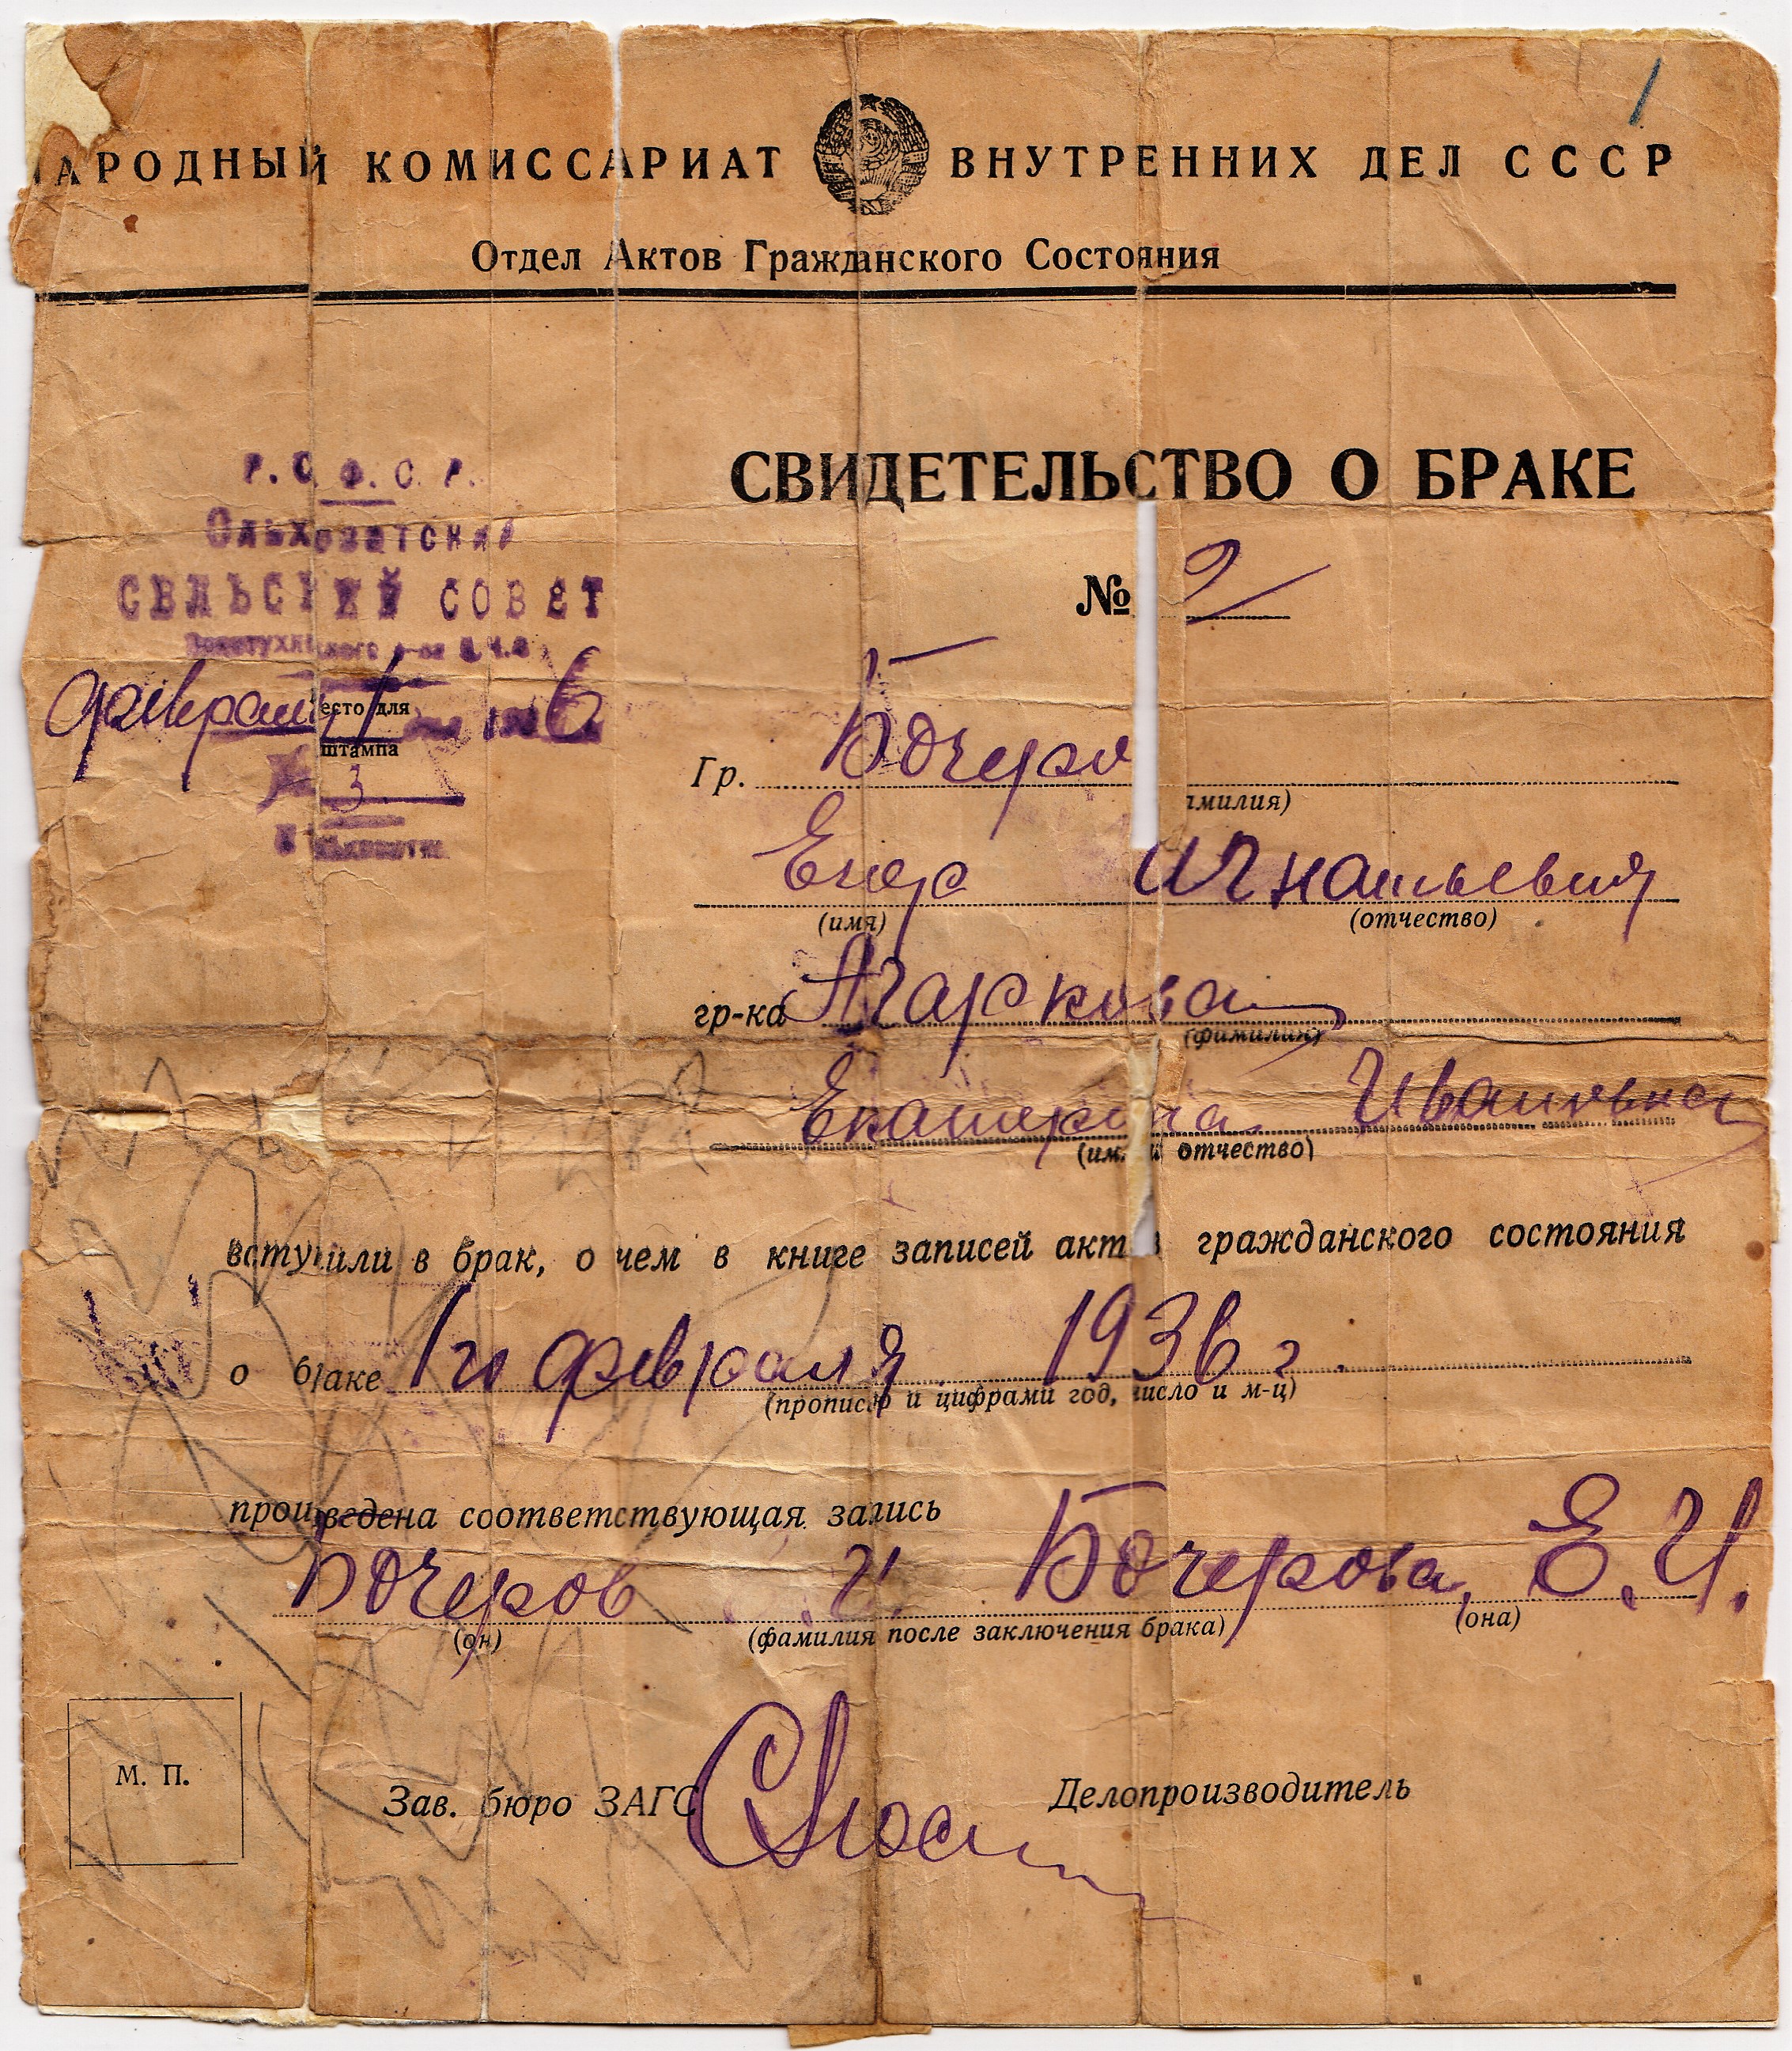 АРОДНЫЙ КОМИССАРИАТ ВНУТРЕННИХ ДЕЛ СССР
Отдел Актов Гражданского Состояния
Р. С. Ф. С. Р.
Ольховатский
СЕЛЬСКИЙ СОВЕТ
февраля 1
есто для
штампа
3
СВИДЕТЕЛЬСТВО О БРАКЕ
№ 2
Гр. Бочеро
амилия)
Егор Игнатьевич
(имя) (отчество)
гр-ка Агаркова
(фамилия)
Екатерина Ивановна
(имя и отчество)
вступили в брак, о чем в книге записей актов гражданского состояния
о браке 1го февраля 1936 г.
(прописью и цифрами год, число и м-ц)
произведена соответствующая запись
Бочеров И. Бочерова, Е. И.
(он) (фамилия после заключения брака) (она)
М. П.
Зав. бюро ЗАГС Делопроизводитель